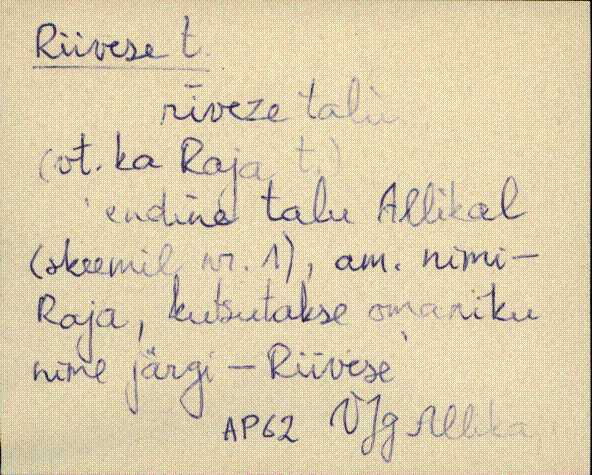 Riivese t.
rīveze talu
(vt. ka Raja t.)
'endine talu Allikal
(skeemil nr. 1), am. nimi-
Raja, kutsutakse omaniku
nime järgi – Riivese'
AP62 VJg Allika